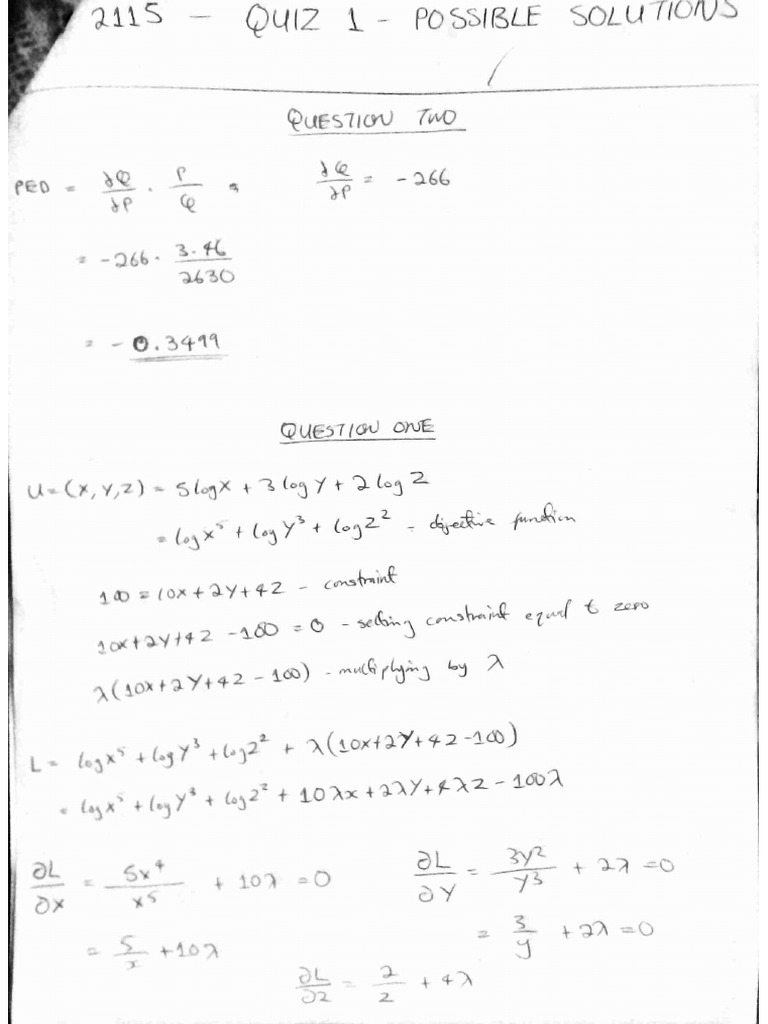 2115 - QUIZ 1 - POSSIBLE SOLUTIONS
QUESTION TWO
PED = ∂Q/∂P · P/Q ; ∂Q/∂P = -266
= -266 · 3.46/2630
= - 0.3499
QUESTION ONE
U = (X, Y, Z) = 5 log X + 3 log Y + 2 log Z
= log X⁵ + log Y³ + log Z² - objective function
100 = 10X + 2Y + 4Z - constraint
10X + 2Y + 4Z - 100 = 0 - setting constraint equal to zero
λ(10X + 2Y + 4Z - 100) - multiplying by λ
L = log X⁵ + log Y³ + log Z² + λ(10X + 2Y + 4Z - 100)
= log X⁵ + log Y³ + log Z² + 10λX + 2λY + 4λZ - 100λ
∂L/∂X = 5X⁴/X⁵ + 10λ = 0 ∂L/∂Y = 3Y²/Y³ + 2λ = 0
= 5/x + 10λ = 3/y + 2λ = 0
∂L/∂Z = 2/Z + 4λ